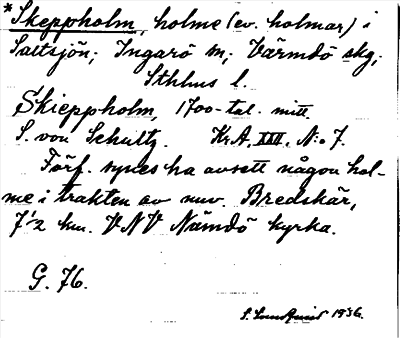 *Skeppholm, holme (ev. holmar) i
Saltsjön; Ingarö sn; Värmdö skg;
Sthlms l.
Skieppholm, 1700-tal. mitt.
S. von Schultz. Kr.A, XXX, N:o 7.
Förf. synes ha avsett någon hol-
me i trakten av nuv. Bredskär,
7½ km. VNV Nämdö kyrka.
G. 76.
S. Lundqvist 1936.